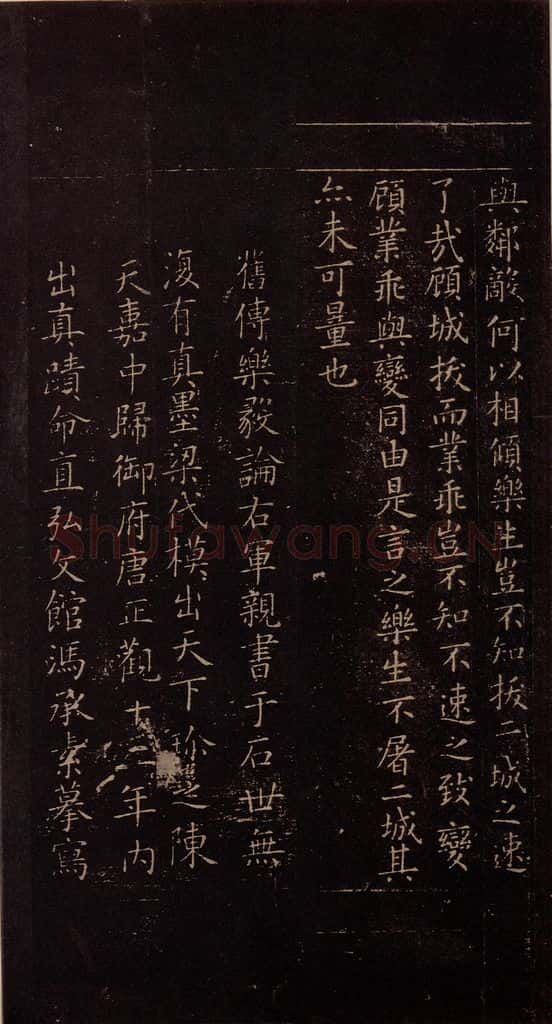 與鄰敵何以相傾樂生豈不知拔二城之速
了哉顧城拔而業乖豈不知不速之致變
顧業乖與變同由是言之樂生不屠二城其
亦未可量也
舊傳樂毅論右軍親書于石世無
復有真墨梁代模出天下珍之陳
天嘉中歸御府唐正觀十三年內
出真蹟命直弘文館馮承素摹寫
Shufawang.CN